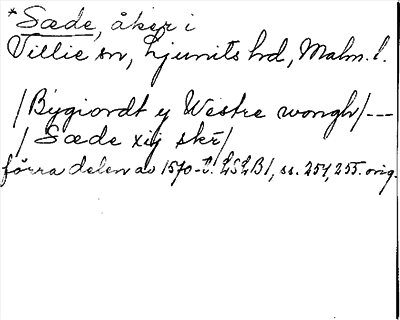 *Sæde, åker i
Villie sn, Ljunits hd, Malm. l.
/Bygiordt y Westre wongh/---
/Sæde xij skr/
förra delen av 1570-t. LSLB1, ss. 254, 255. orig.